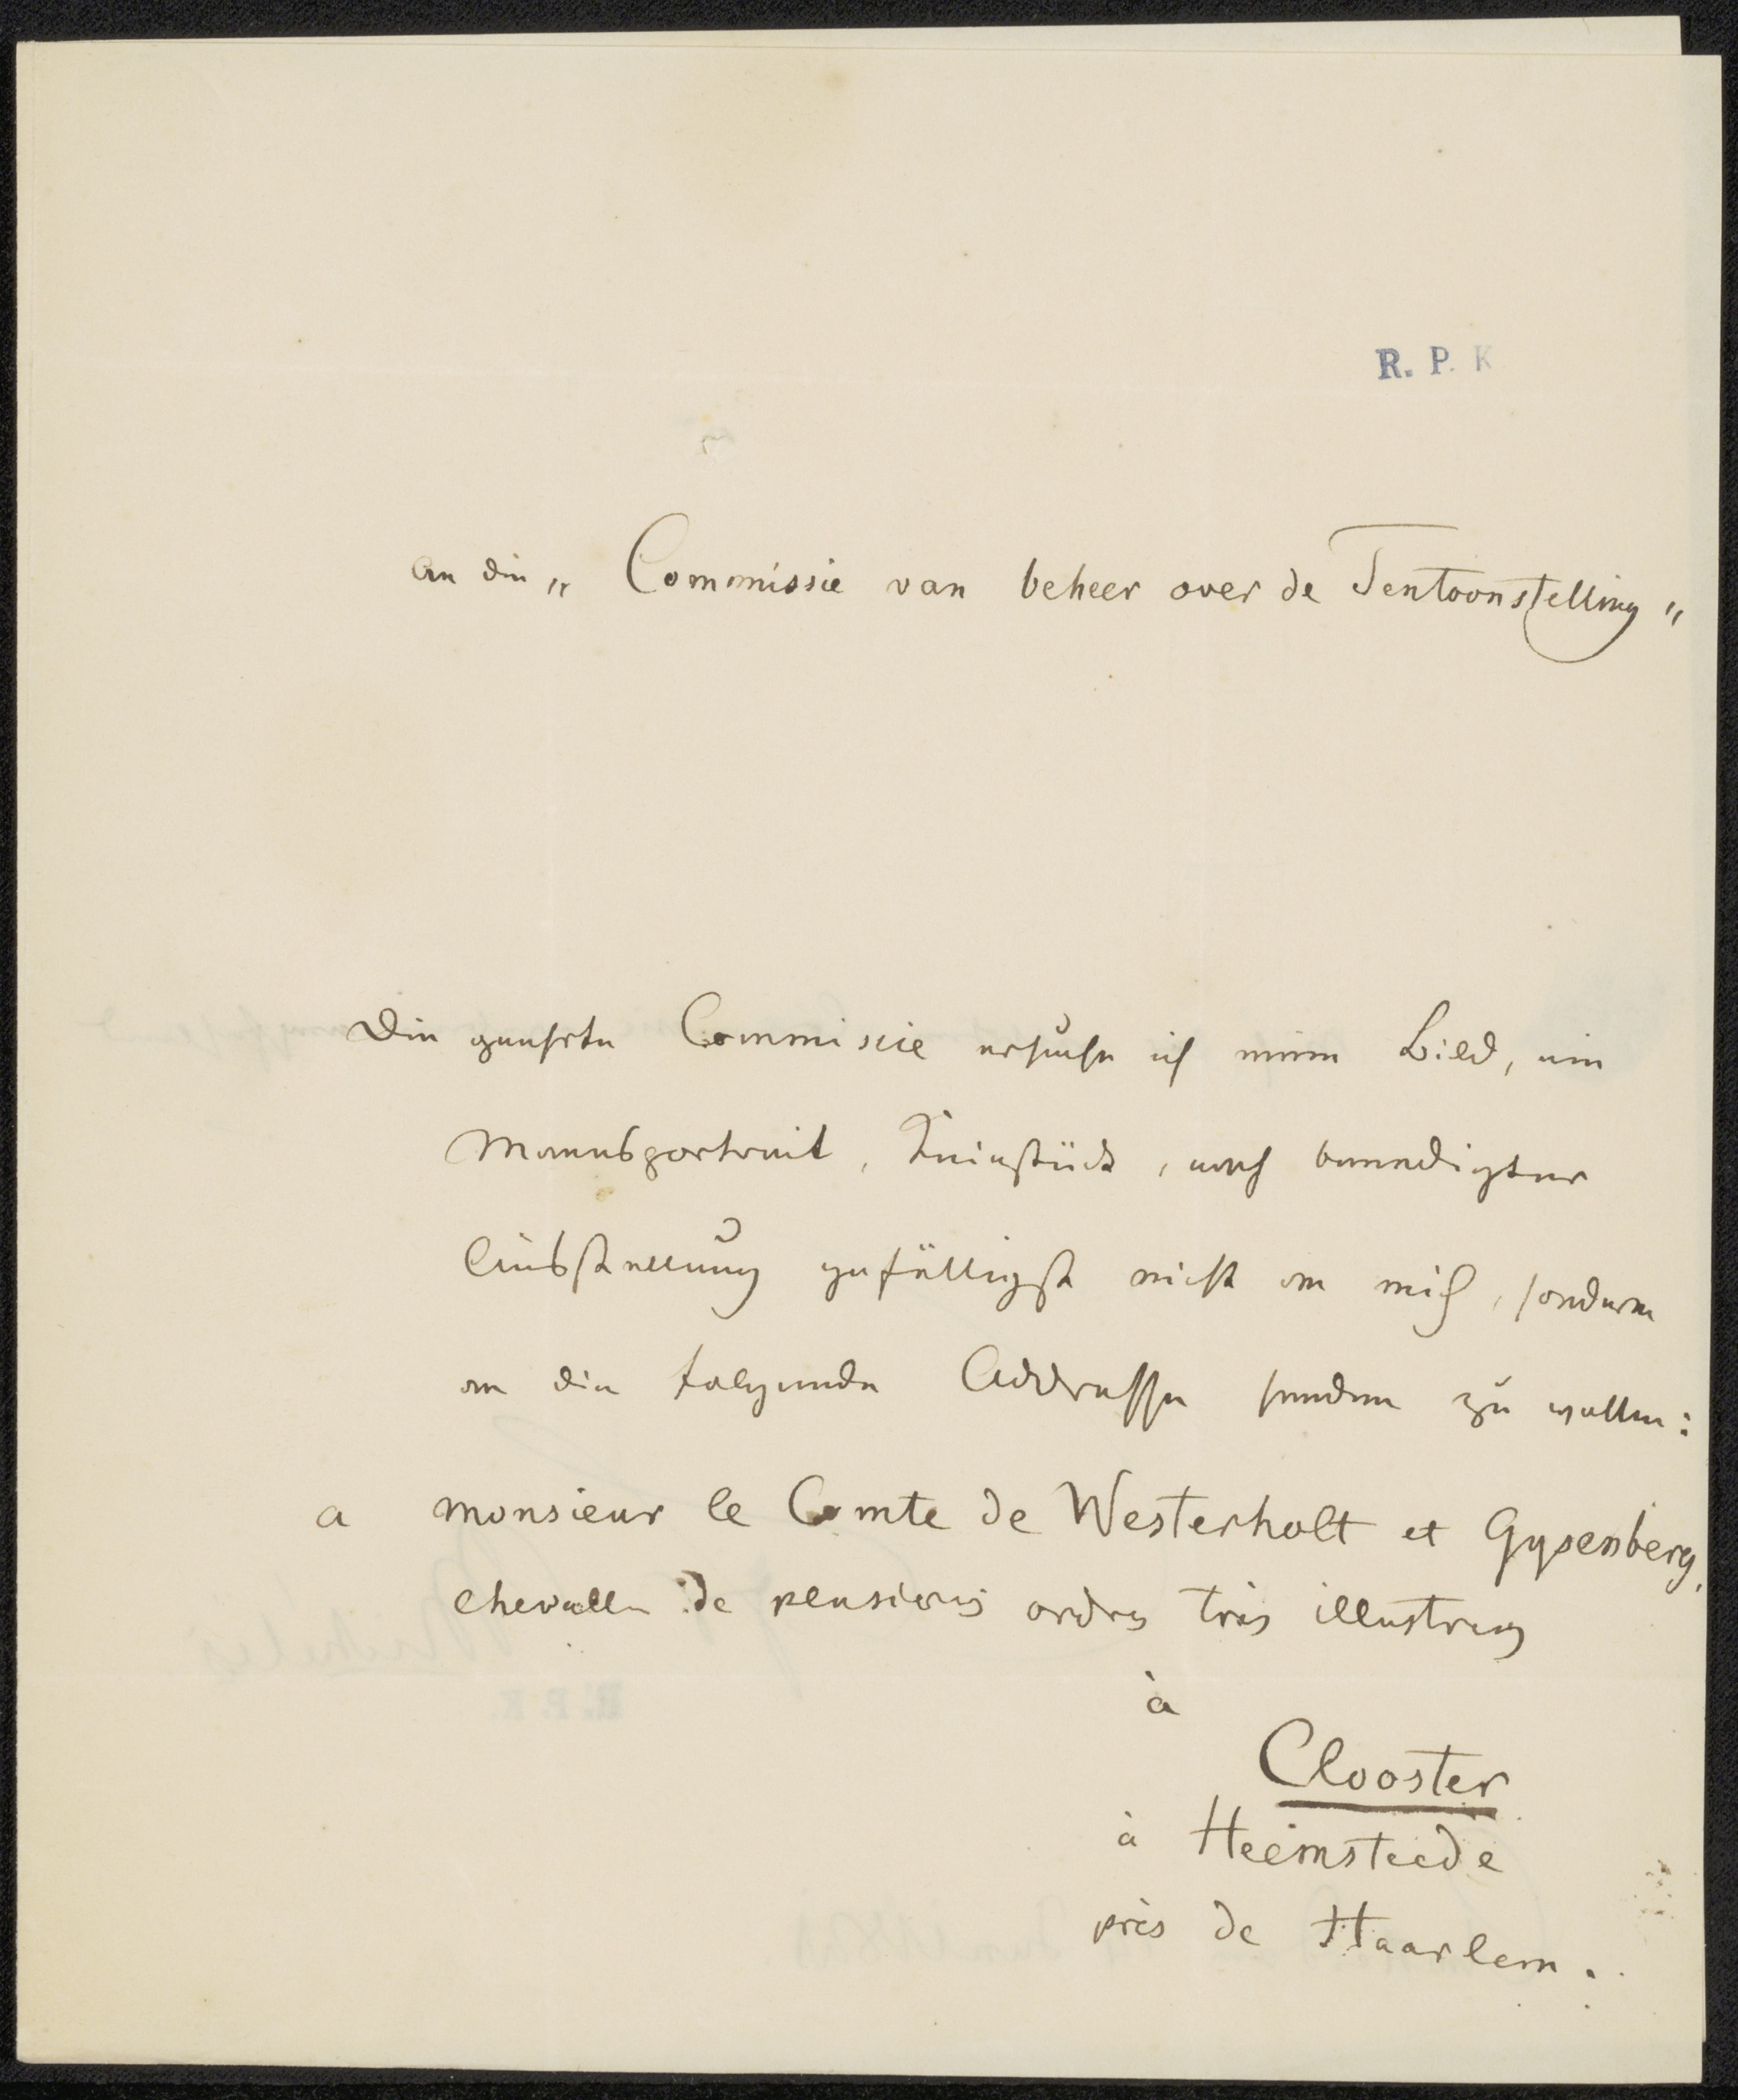 R. P. K
An die „Commissie van beheer over de Tentoonstelling"
Die geehrte Commissie ersuche ich mein Bild, ein
Mannsportrait, Kniestück, nach beendigter
Ausstellung gefälligst nicht an mich, sondern
an die folgende Addresse senden zu wollen:
a monsieur le Comte de Westerholt et Gysenberg,
chevallr de plusieurs ordres très illustres
à
Clooster
à Heemsteede
près de Haarlem.